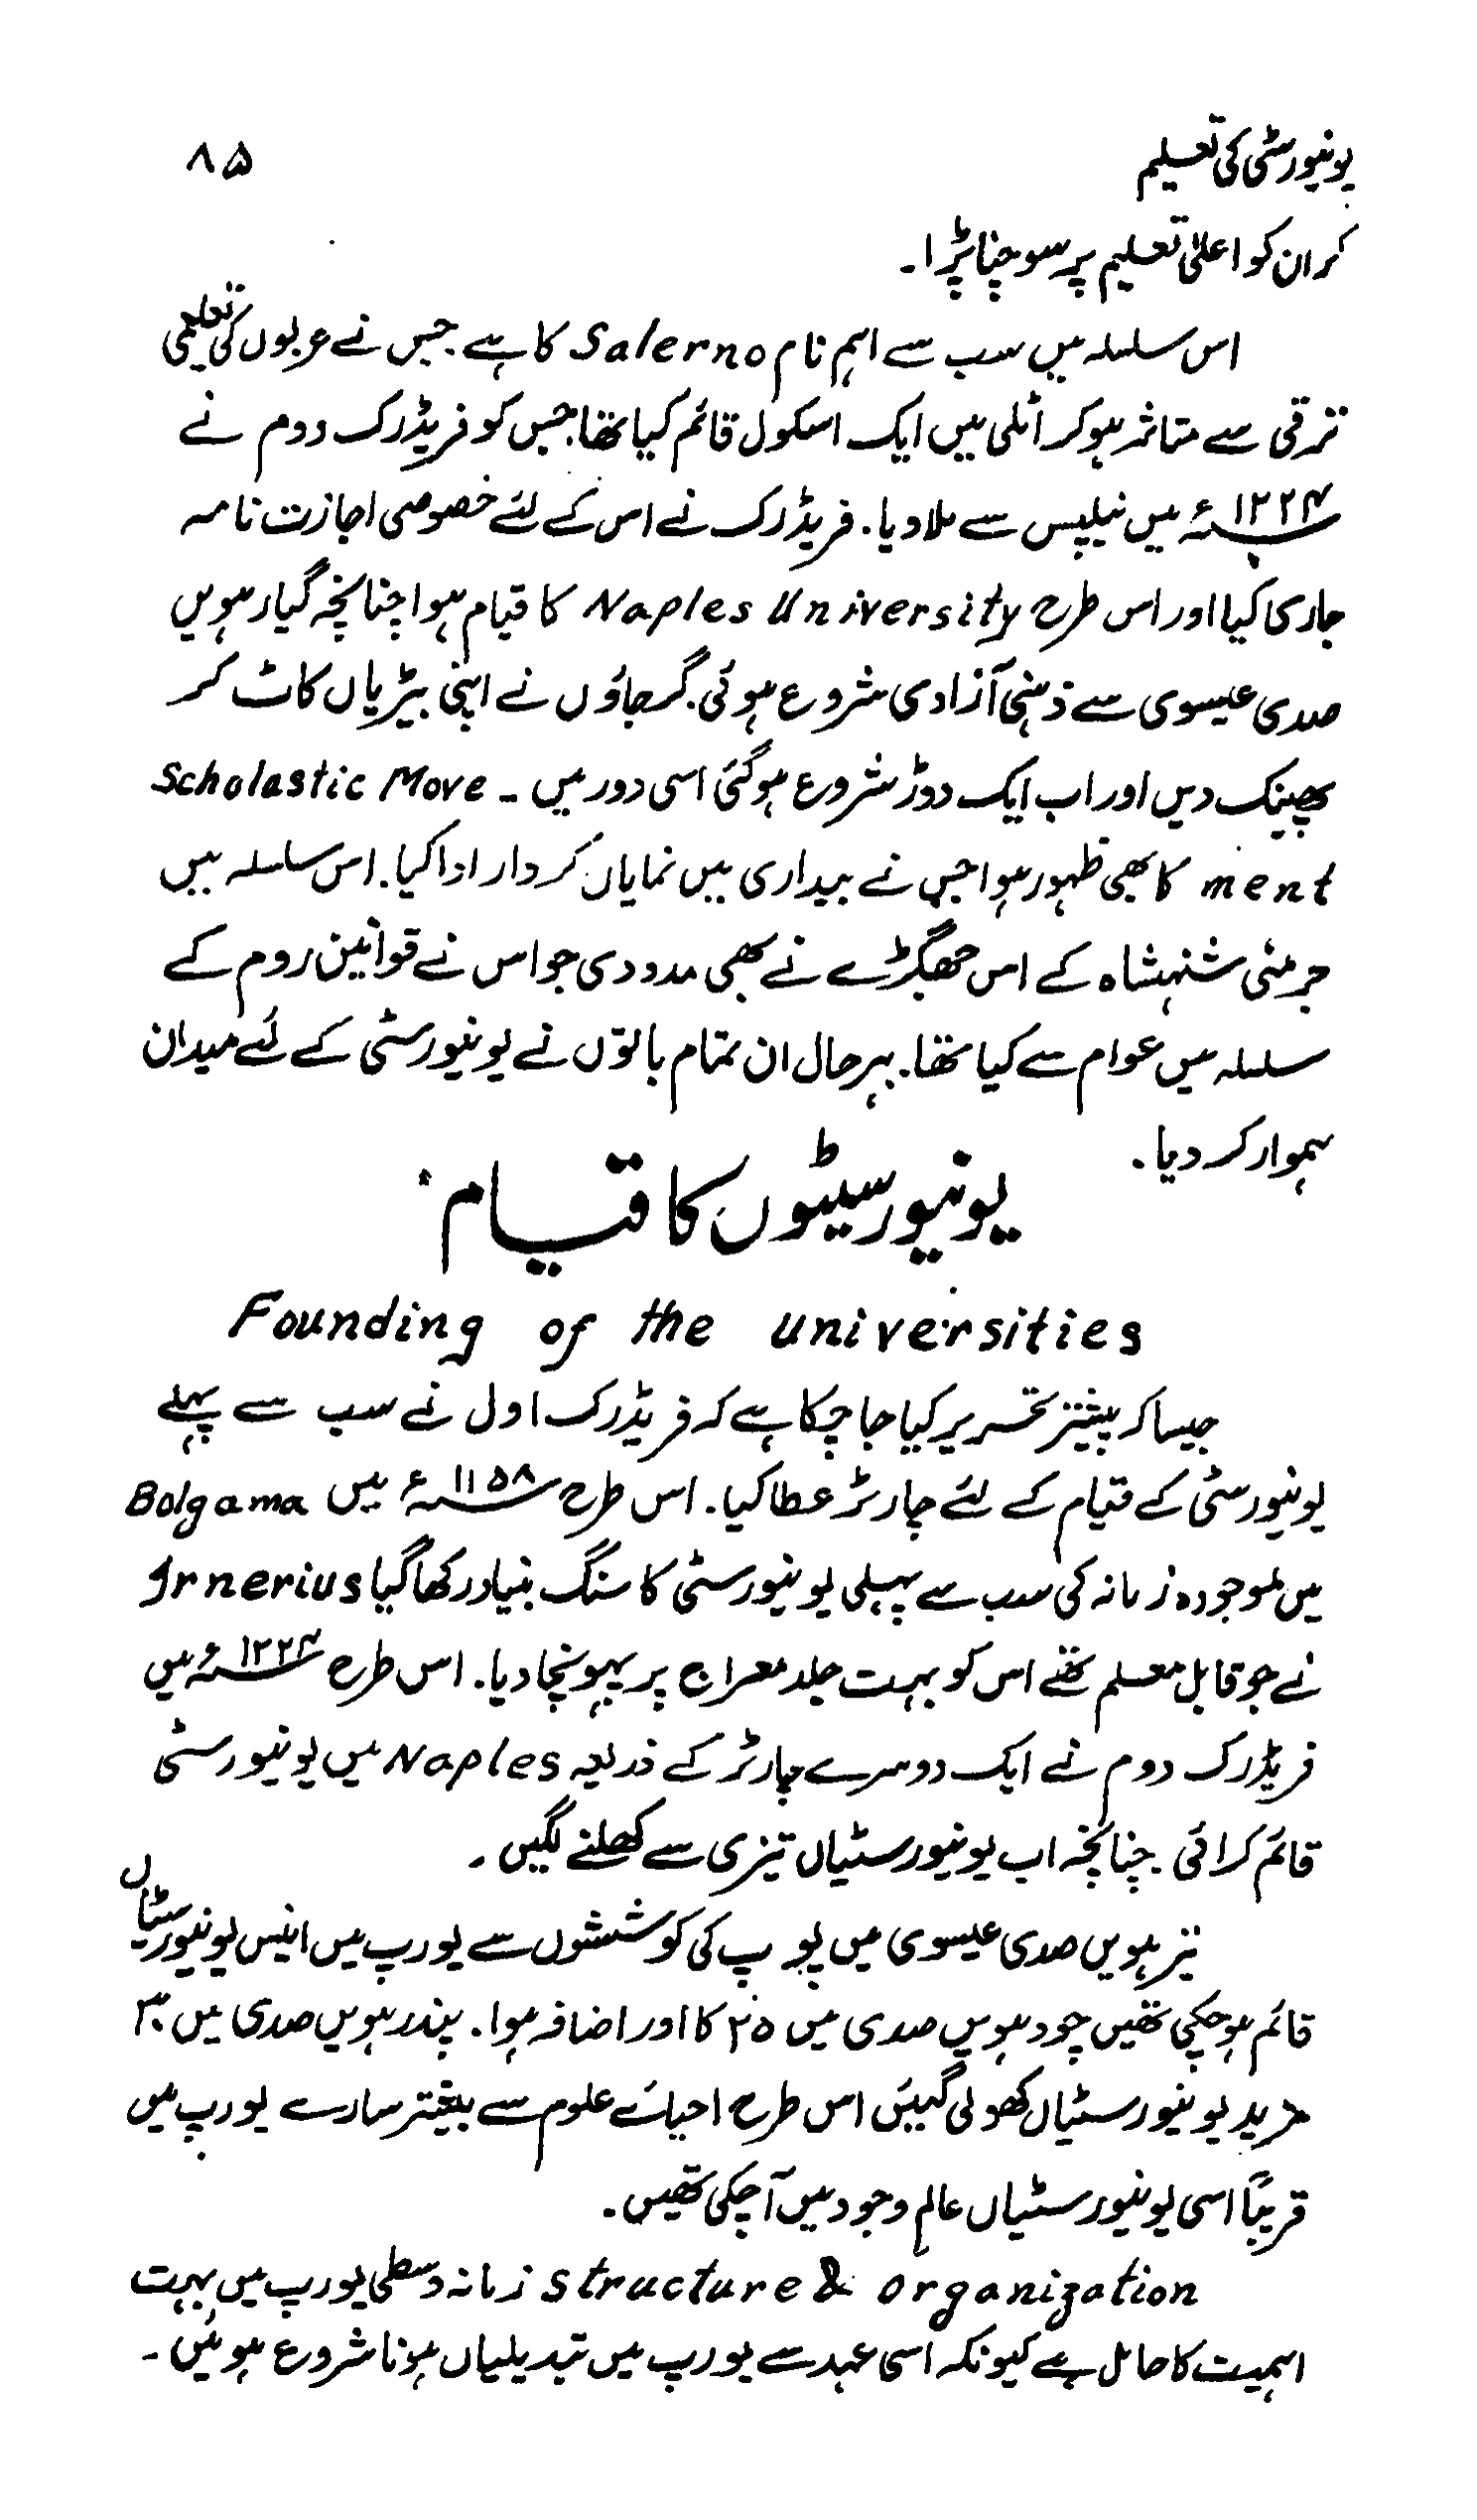 یونیورسٹی کی تعلیم ۸۵
کر ان کو اعلیٰ تعلیم پر سوچنا پڑا۔
اس سلسلہ میں سب سے اہم نام Salerno کا ہے جس نے عربوں کی تعلیمی
ترقی سے متاثر ہو کر اٹلی میں ایک اسکول قائم کیا تھا جس کو فریڈرک دوم نے
۱۲۲۴ء میں نیپلس سے ملا دیا۔ فریڈرک نے اس کے لئے خصوصی اجازت نامہ
جاری کیا اور اس طرح Naples University کا قیام ہوا چنانچہ گیارہویں
صدی عیسوی سے ذہنی آزادی شروع ہوئی۔ گرجاؤں نے اپنی بیڑیاں کاٹ کر
پھینک دیں اور اب ایک دوڑ شروع ہو گئی اسی دور میں - Scholastic Move
ment کا بھی ظہور ہوا جس نے بیداری میں نمایاں کردار ادا کیا۔ اس سلسلہ میں
جرمنی شنہشاہ کے اس جھگڑے نے بھی مدد دی جو اس نے قوانین روم کے
سلسلہ میں عوام سے کیا تھا۔ بہرحال ان تمام باتوں نے یونیورسٹی کے لئے میدان
ہموار کر دیا۔
یونیورسیٹوں کا قیام
Founding of the universities
جیسا کہ پیشتر تحریر کیا جا چکا ہے کہ فریڈرک اول نے سب سے پہلے
یونیورسٹی کے قیام کے لئے چارٹر عطا کیا۔ اس طرح ۱۱۵۸ء میں Bolgama
میں موجودہ زمانہ کی سب سے پہلی یونیورسٹی کا سنگ بنیاد رکھا گیا Irnerius
نے جو قابل معلم تھے اس کو بہت جلد معراج پر پہونچا دیا۔ اس طرح ۱۲۲۴ء میں
فریڈرک دوم نے ایک دوسرے چارٹر کے ذریعہ Naples میں یونیورسٹی
قائم کرائی۔ چنانچہ اب یونیورسٹیاں تیزی سے کھلنے لگیں۔
تیرہویں صدی عیسوی میں پوپ کی کوششوں سے یورپ میں انیس یونیورسٹیاں
قائم ہو چکی تھیں چودہویں صدی میں ۲۵ کا اور اضافہ ہوا۔ پندرہویں صدی میں ۳۰
مزید یونیورسٹیاں کھولی گیئں اس طرح احیائے علوم سے بیشتر سارے یورپ میں
قریباً اسی یونیورسٹیاں عالم وجود میں آ چکی تھیں۔
Structure & Organization زمانہ وسطی یورپ میں بہت
اہمیت کا حامل ہے کیونکہ اسی عہد سے یورپ میں تبدیلیاں ہونا شروع ہوئیں۔